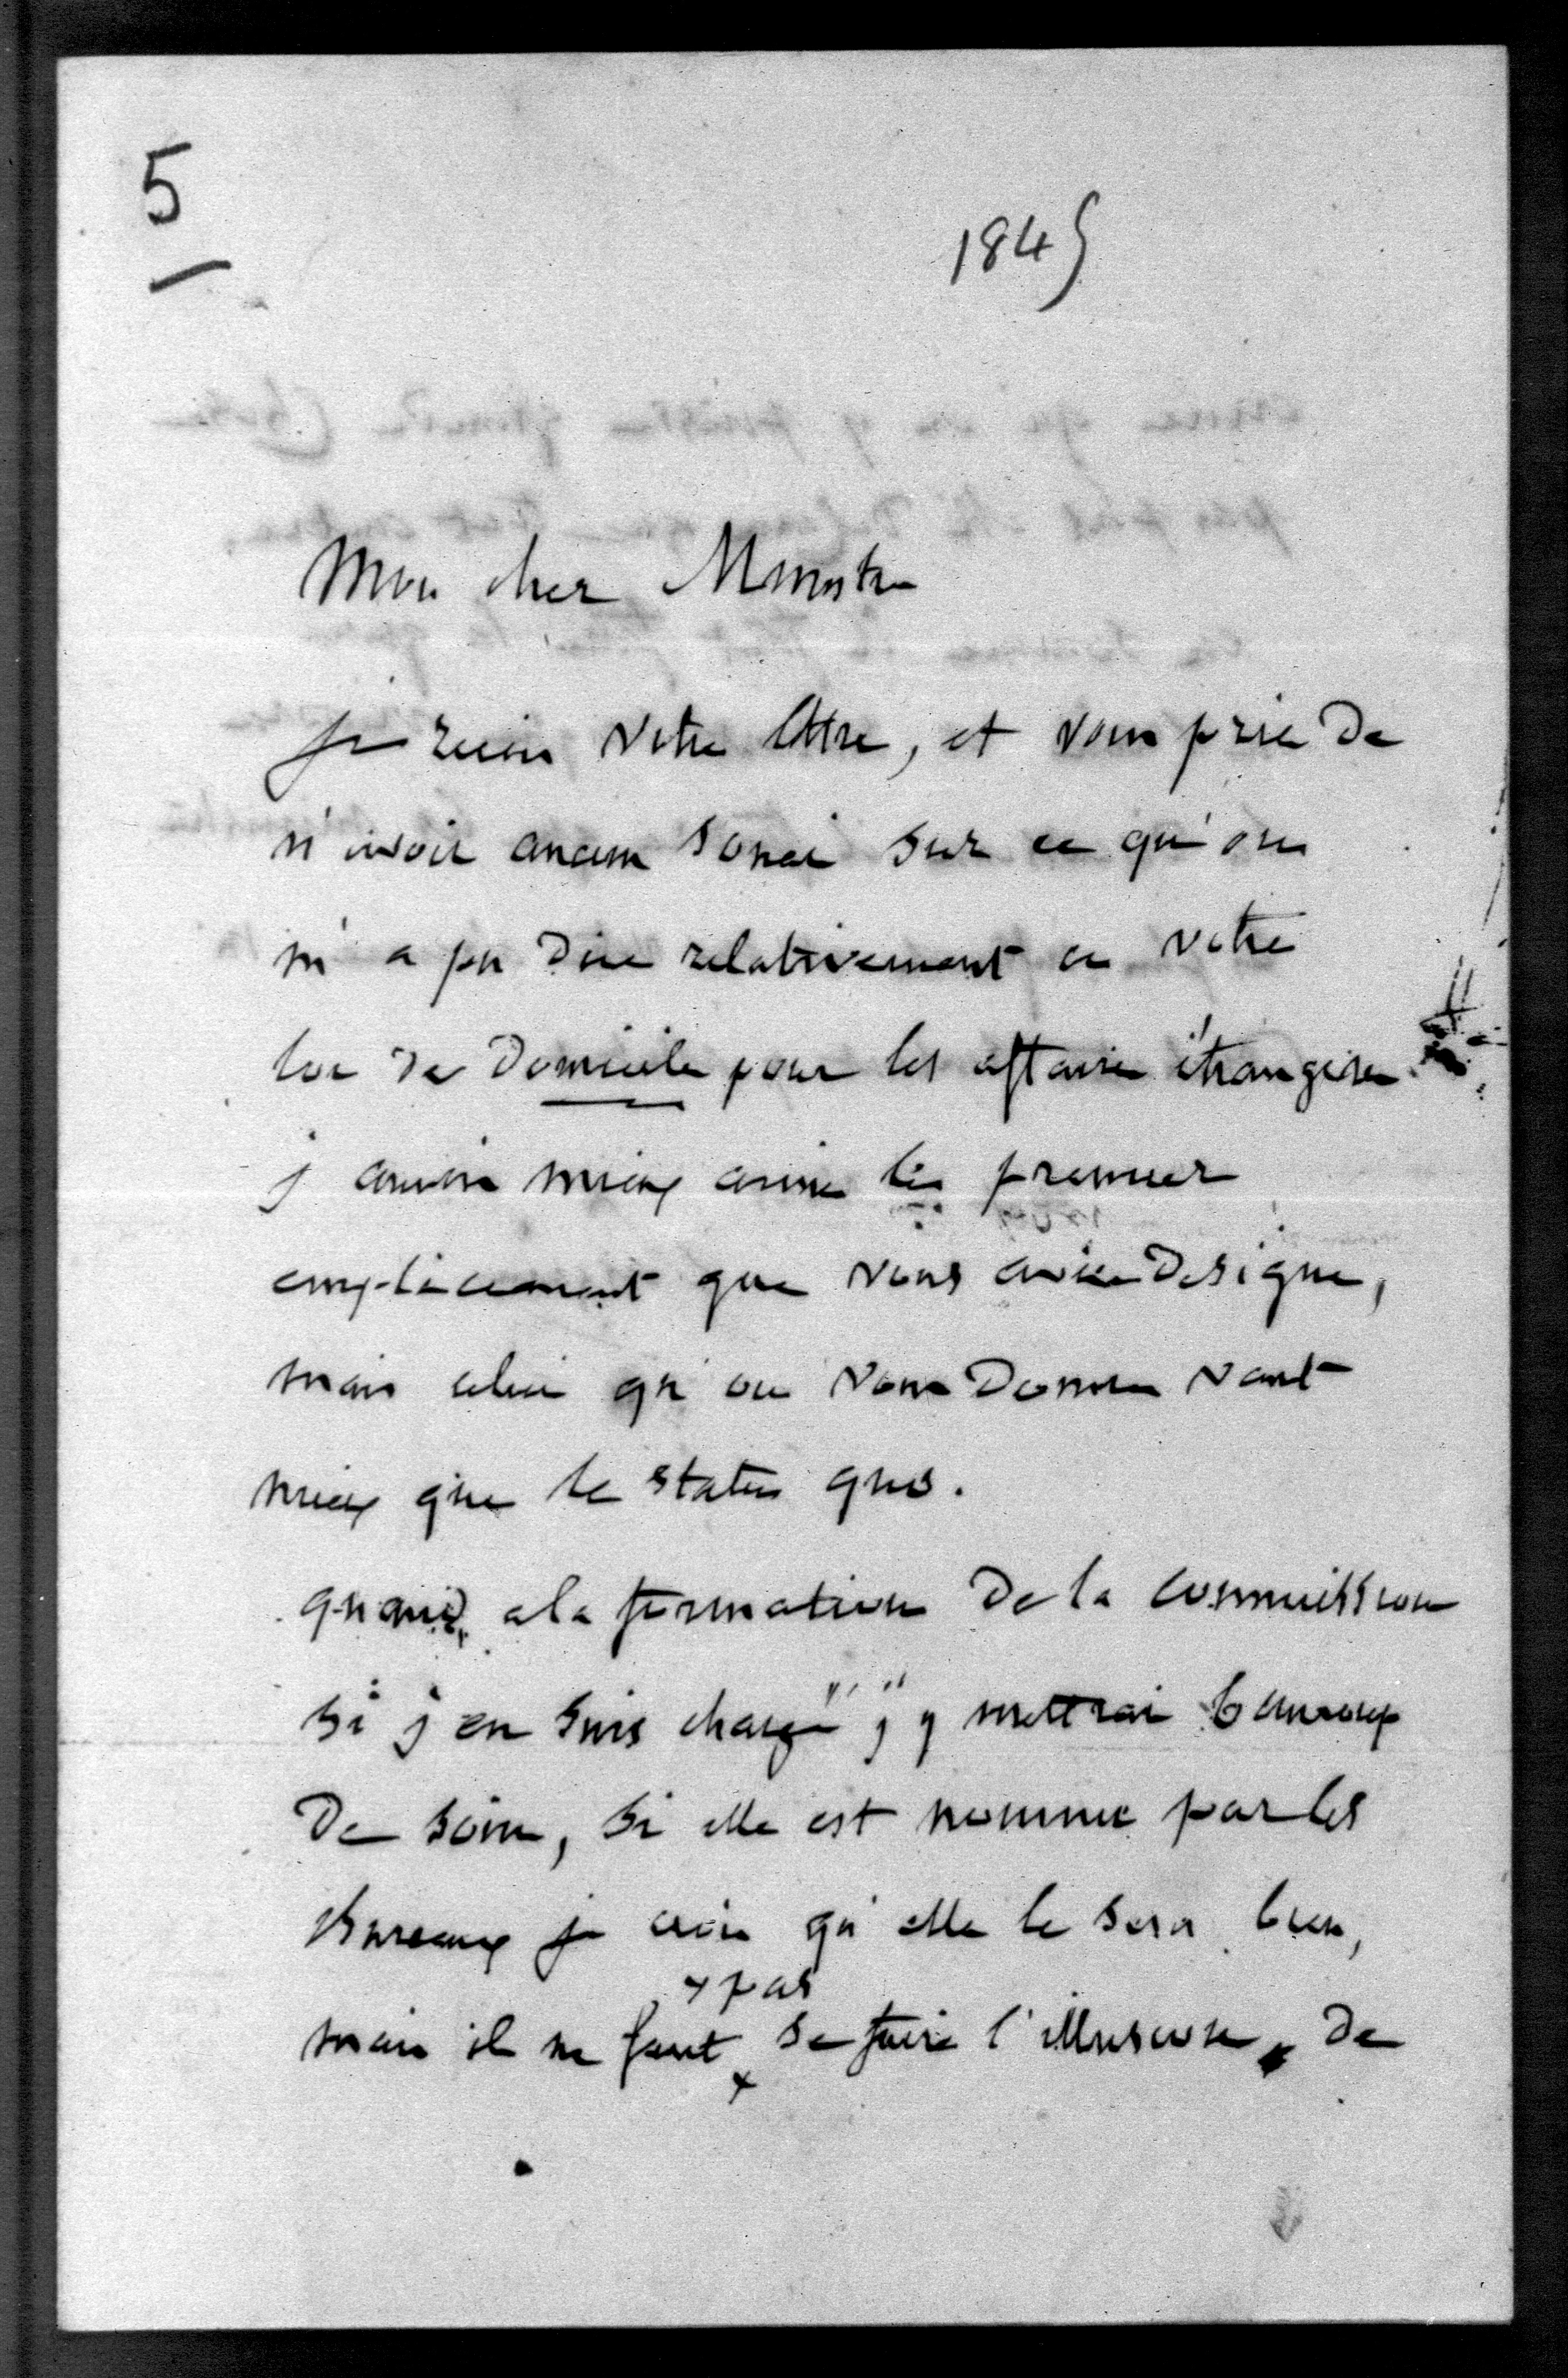 5
1845
Mon cher Ministre
je recois votre lettre, et vous prie de
n'avoir aucun souci sur ce qu'on
m'a pu dire relativement a votre
loi de domicile pour les affaires étrangeres
j'aurois mieux aimé le premier
emplacement que vous aviez designe,
mais celui qu'on vous donne vaut
mieux que le statu quo.
quand a la formation de la commission
si j'en suis chargé j'y mettrai beaucoup
de soin, si elle est nommée par les
bureaux je crois qu'elle le sera bien,
+ pas
mais il ne faut + se faire l'illusion, de